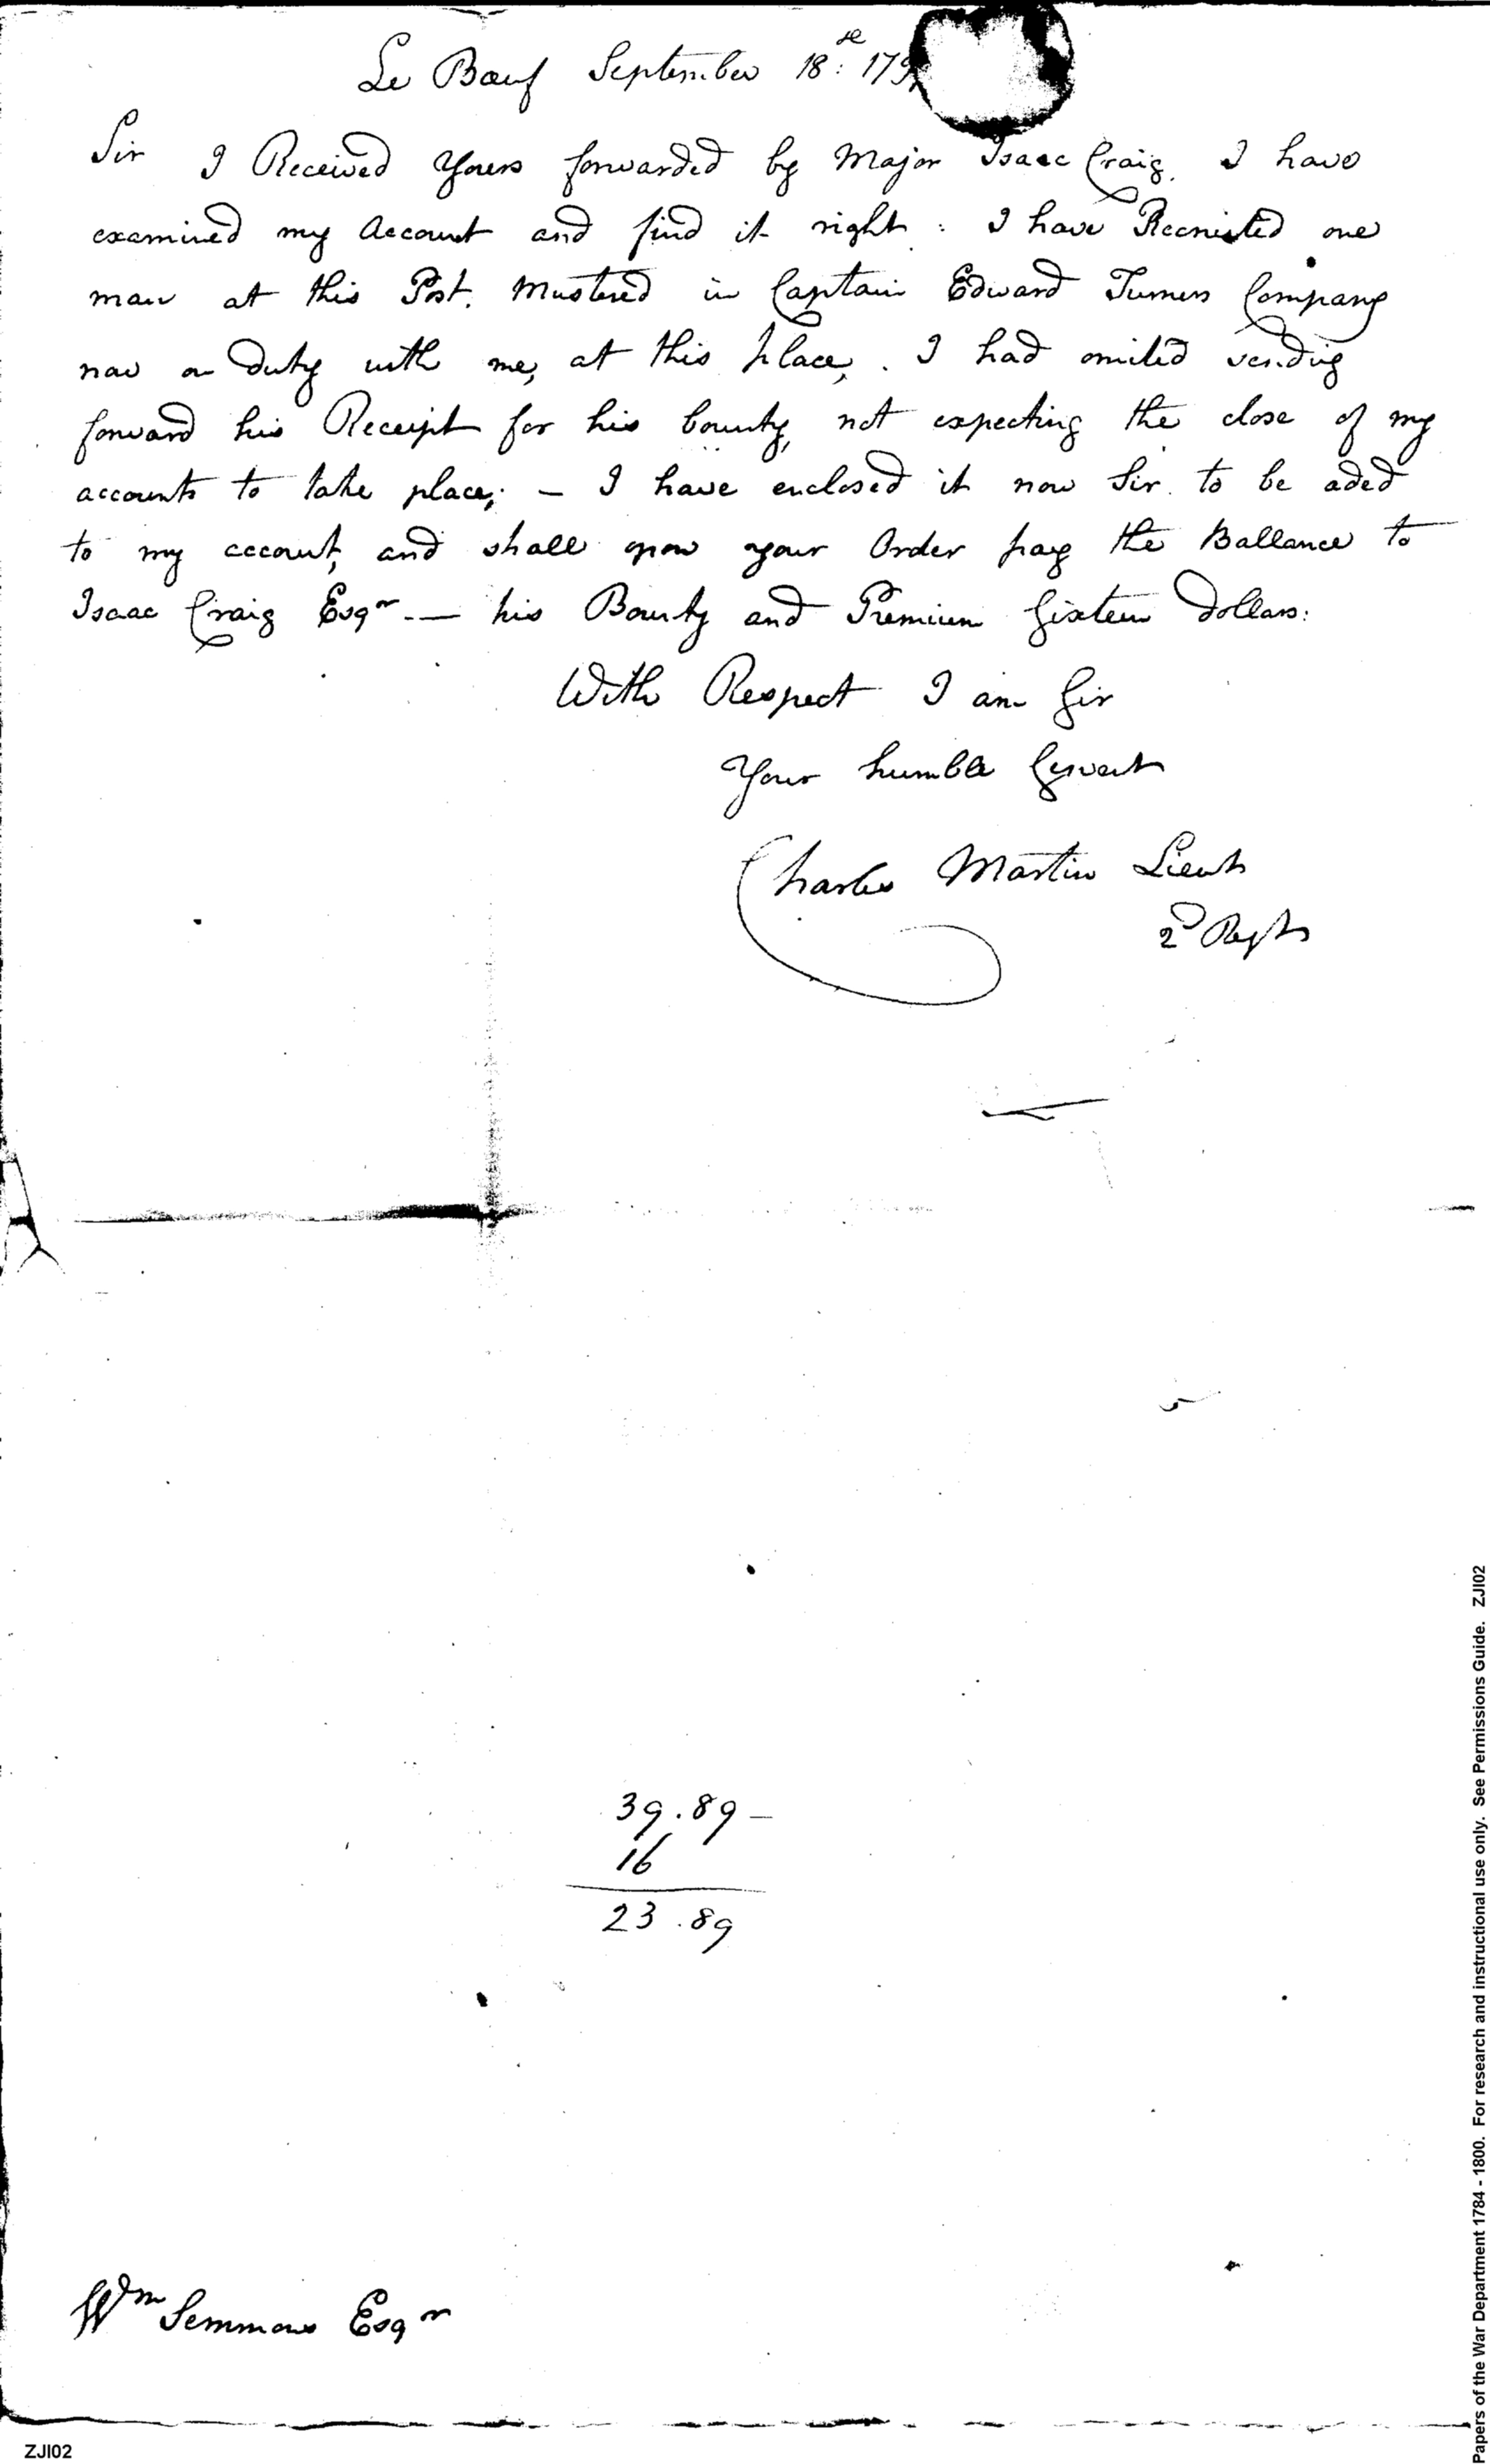 Le Bœuf September 18: 179
Sir I Received Yours forwarded by Major Isaac Craig. I have
examined my Account and find it right : I have Recruited one
man at this Post. Mustered in Captain Edward Turners Company
now on Duty with me, at this place, . I had omited sending
forward his Receipt for his bounty, not expecting the close of my
accounts to take place; — I have enclosed it now Sir. to be aded
to my account, and shall upon your Order pay the Ballance to
Isaac Craig Esqr — his Bounty and Premium Sixteen Dollars:
With Respect I am Sir
Your humble Servant
Charles Martin Lieut
2D Regt
39.89 —
16
23.89
Wm Semmons Esqr
ZJI02
Papers of the War Department 1784 - 1800. For research and instructional use only. See Permissions Guide. ZJI02